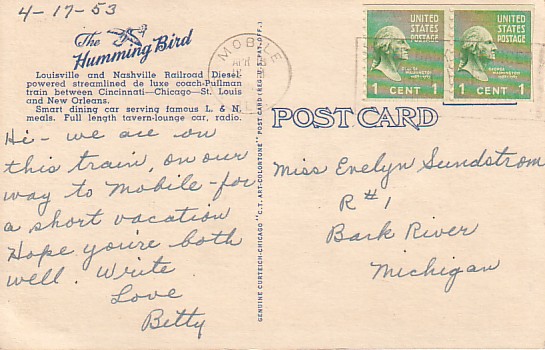 4-17-53
The
Humming Bird
Louisville and Nashville Railroad Diesel-
powered streamlined de luxe coach-Pullman
train between Cincinnati—Chicago—St. Louis
and New Orleans.
Smart dining car serving famous L. & N.
meals. Full length tavern-lounge car, radio.
Hi - we are on
this train, on our
way to Mobile - for
a short vacation
Hope you're both
well. Write
Love
Betty
GENUINE CURTEICH-CHICAGO "C.T. ART-COLORTONE" POST CARD (REG. U.S. PAT. OFF.)
MOBILE
APR
UNITED
STATES
POSTAGE
1 CENT 1
UNITED
STATES
POSTAGE
1 CENT 1
POST CARD
Miss Evelyn Sundstrom
R #1
Bark River
Michigan